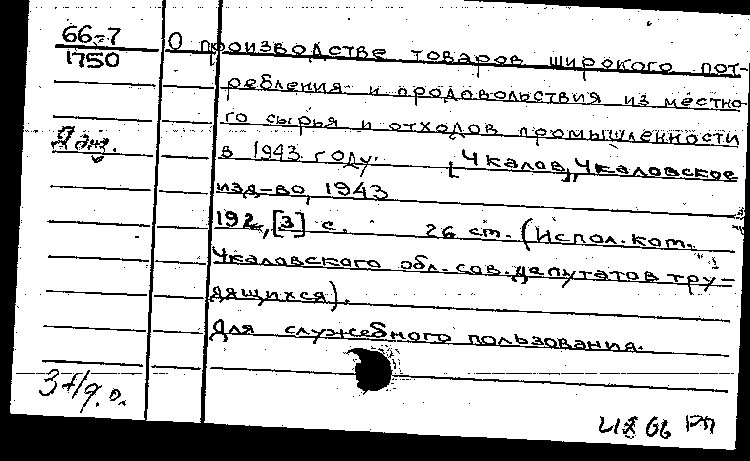 66-7
1750
О производстве товаров широкого пот-
ребления и продовольствия из местно-
го сырья и отходов промышленности
2 экз.
в 1943 году. [Чкалов], Чкаловское
изд-во, 1943
192, [3] с. 26 ст. (Испол. ком.
Чкаловского обл. сов. депутатов тру-
дящихся).
Для служебного пользования.